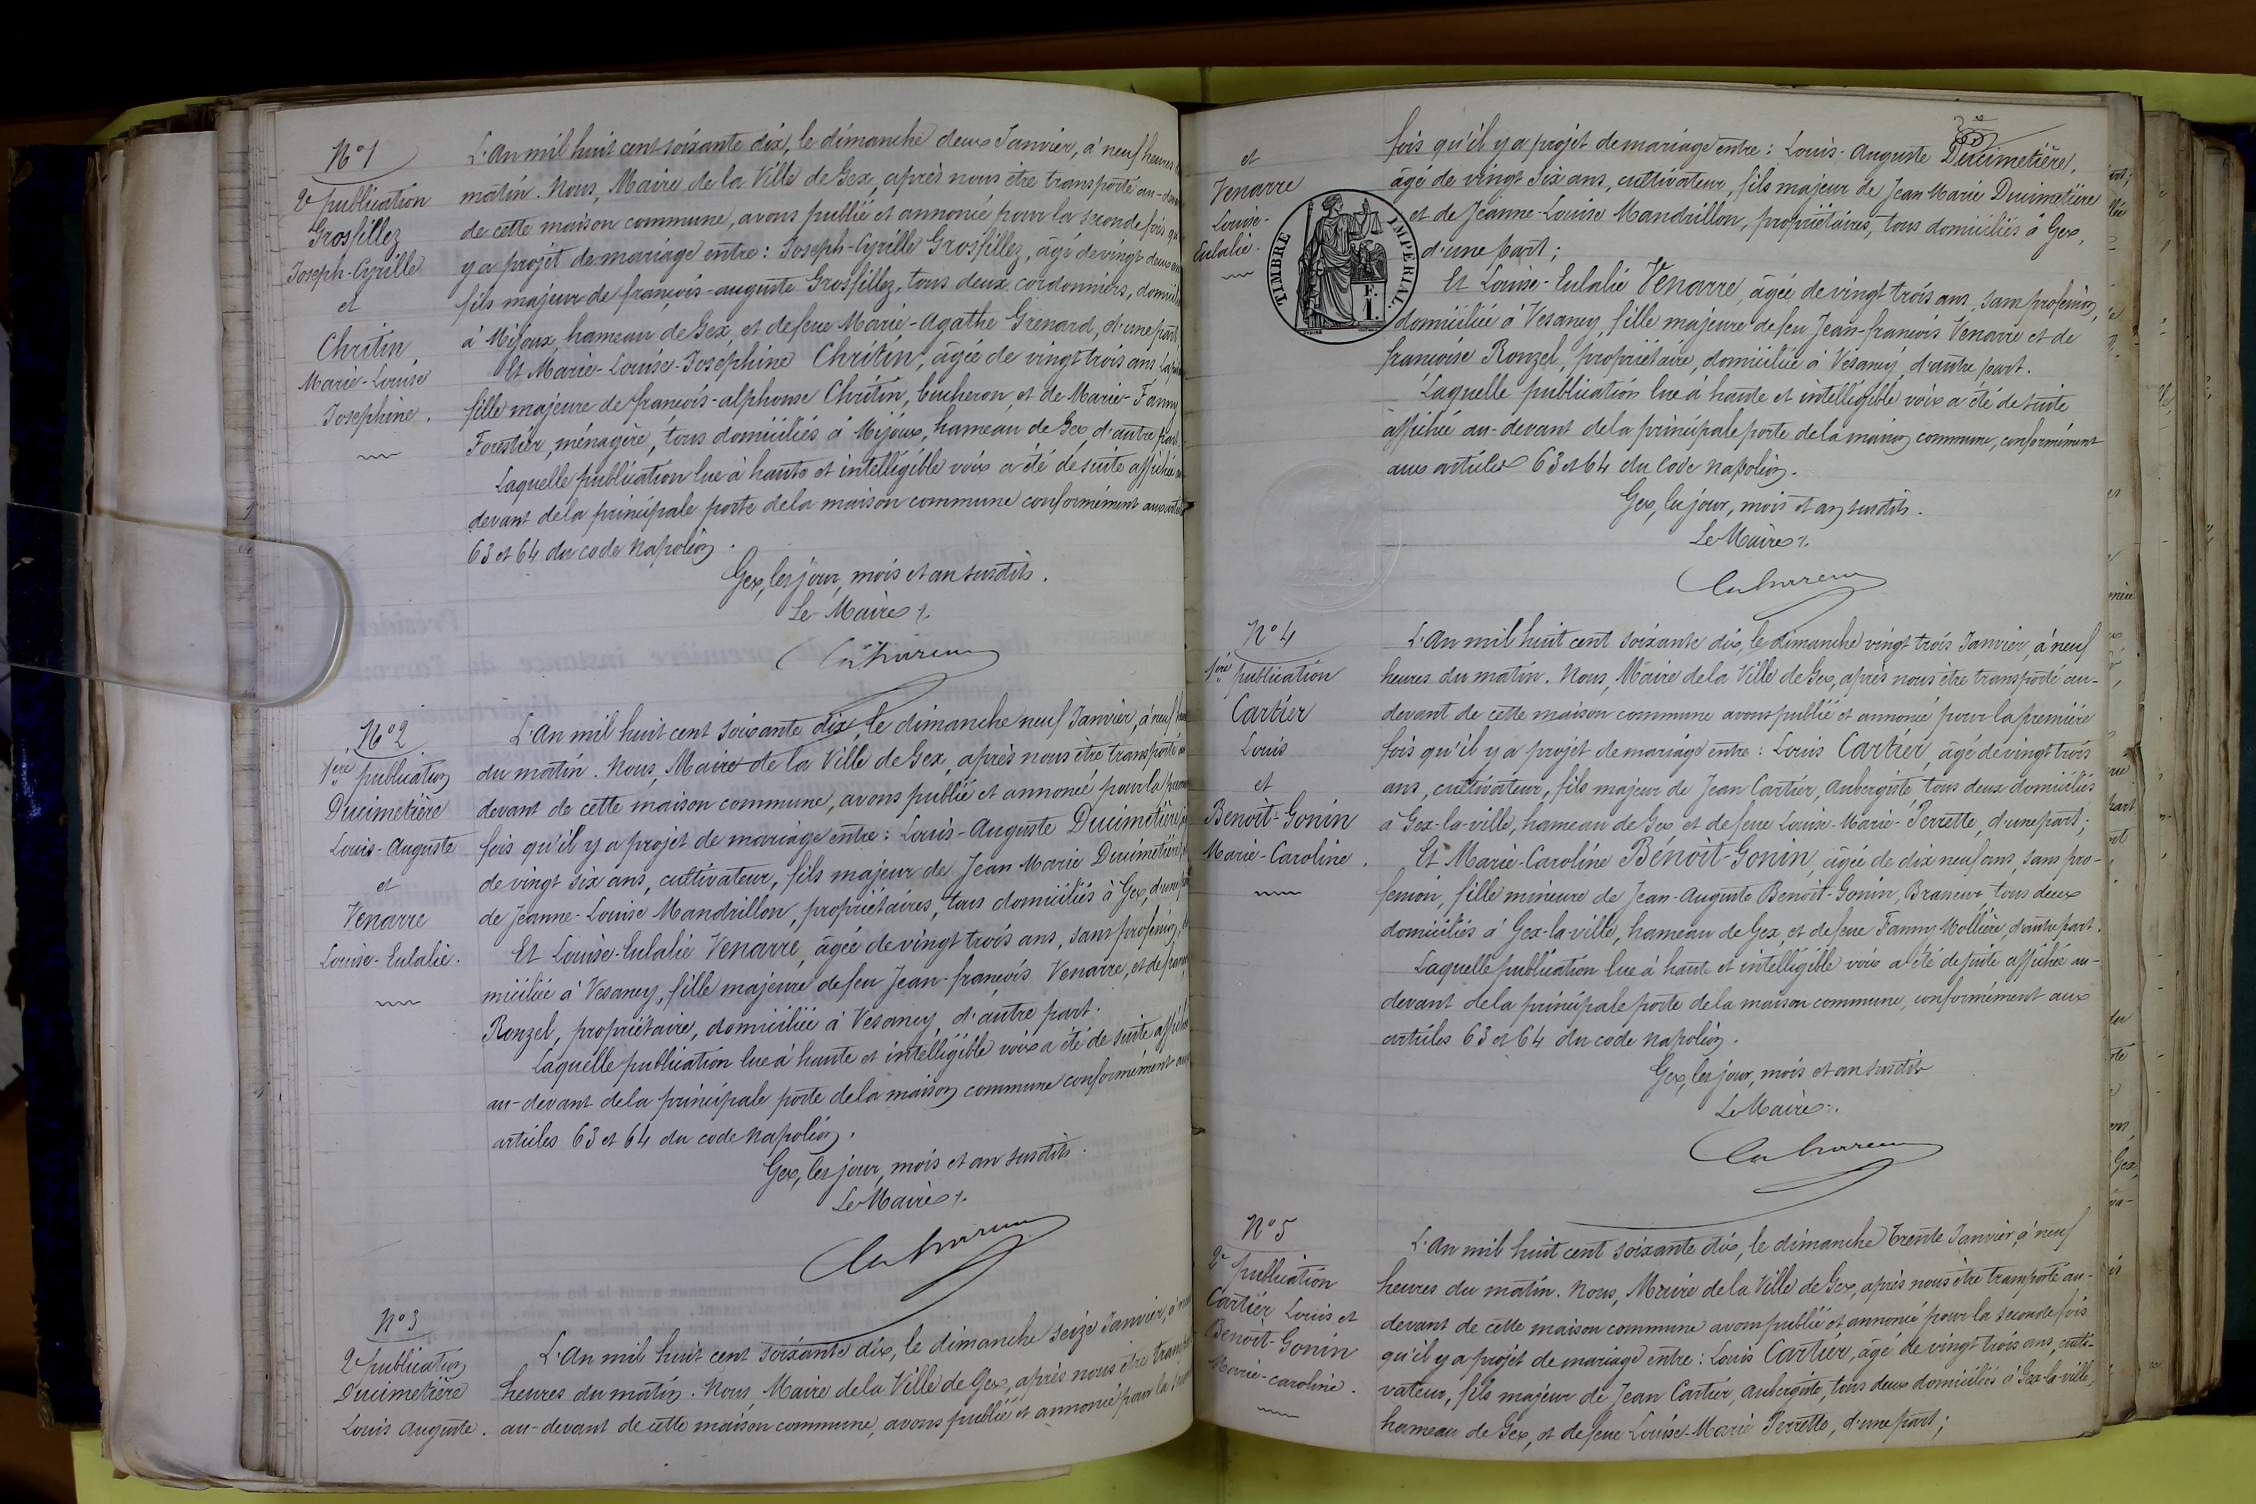 N° 1
2e publication
Grosfillez
Joseph-Cyrille
et
Chritin
Marie-Louise
Josephine.
L'An mil huit cent soixante dix, le dimanche deux Janvier, à neuf heures
matin. Nous, Maire de la Ville de Gex, après nous être transporté au-
de cette maison commune, avons publié et annoncé pour la seconde fois
y a projet de mariage entre : Joseph-Cyrille Grosfillez, âgé de vingt deux
fils majeur de françois-auguste Grosfillez, tous deux cordonniers,
à Mijoux, hameau de Gex, et de feue Marie-Agathe Grenard, d'une part
Et Marie-Louise-Joséphine Chritin, âgée de vingt trois ans
fille majeure de françois-alphonse Chritin, bucheron, et de Marie-Fanny
Forestier, ménagère, tous domiciliés à Mijoux, hameau de Gex, d'autre part.
Laquelle publication lue à haute et intelligible voix a été de suite affichée
devant de la principale porte de la maison commune conformément aux
63 et 64 du code Napoléon.
Gex, les jour, mois et an susdits.
Le Maire
N° 2
1ère publication
Ducimetière
Louis-Auguste
et
Venarre
Louise-Eulalie.
L'An mil huit cent soixante dix, le dimanche neuf Janvier, à neuf
du matin. Nous, Maire de la Ville de Gex, après nous être transporté
devant de cette maison commune, avons publié et annoncé pour la
fois qu'il y a projet de mariage entre : Louis-Auguste Ducimetière
de vingt six ans, cultivateur, fils majeur de Jean Marie Ducimetière
de Jeanne-Louise Mandrillon, propriétaires, tous domiciliés à Gex, d'une
Et Louise-Eulalie Venarre, âgée de vingt trois ans, sans profession,
miciliée à Vesancy, fille majeure de feu Jean-françois Venarre, et de
Ronzel, propriétaire, domiciliée à Vesancy, d'autre part.
Laquelle publication lue à haute et intelligible voix a été de suite
au-devant de la principale porte de la maison commune conformément
articles 63 et 64 du code Napoléon.
Gex, les jour, mois et an susdits.
Le Maire
N° 3
2e publication
Ducimetière
Louis Auguste.
L'An mil huit cent soixante dix, le dimanche seize Janvier, à
heures du matin. Nous Maire de la Ville de Gex, après nous être
au-devant de cette maison commune, avons publié et annoncé pour la
et
Venarre
Louise-
Eulalie.
TIMBRE IMPERIAL
F.
1.
fois qu'il y a projet de mariage entre : Louis-Auguste Ducimetière,
âgé de vingt six ans, cultivateur, fils majeur de Jean Marie Ducimetière
et de Jeanne-Louise Mandrillon, propriétaires, tous domiciliés à Gex,
d'une part ;
Et Louise-Eulalie Venarre, âgée de vingt trois ans, sans profession,
domiciliée à Vesancy, fille majeure de feu Jean-françois Venarre et de
françoise Ronzel, propriétaire, domiciliée à Vesancy, d'autre part.
Laquelle publication lue à haute et intelligible voix a été de suite
affichée au-devant de la principale porte de la maison commune, conformément
aux articles 63 et 64 du Code Napoléon.
Gex, les jour, mois et an susdits.
Le Maire
N° 4
1ère publication
Cartier
Louis
et
Benoit-Gonin
Marie-Caroline.
L'An mil huit cent soixante dix, le dimanche vingt trois Janvier, à neuf
heures du matin. Nous, Maire de la Ville de Gex, après nous être transporté au-
devant de cette maison commune avons publié et annoncé pour la première
fois qu'il y a projet de mariage entre : Louis Cartier, âgé de vingt trois
ans, cultivateur, fils majeur de Jean Cartier, Aubergiste tous deux domiciliés
à Gex-la-ville, hameau de Gex et de feue Louise-Marie-Perrette, d'une part ;
Et Marie-Caroline Benoit-Gonin, âgée de dix neuf ans, sans pro-
fession, fille mineure de Jean-Auguste Benoit-Gonin, Brasseur, tous deux
domiciliés à Gex-la-ville, hameau de Gex, et de feue Fanny Mollière, d'autre part.
Laquelle publication lue à haute et intelligible voix a été de suite affichée au-
devant de la principale porte de la maison commune, conformément aux
articles 63 et 64 du code Napoléon.
Gex, les jour, mois et an susdits
Le Maire
N° 5
2e publication
Cartier Louis et
Benoit-Gonin
Marie-Caroline.
L'An mil huit cent soixante dix, le dimanche trente Janvier, à neuf
heures du matin. Nous, Maire de la Ville de Gex, après nous être transporté au-
devant de cette maison commune avons publié et annoncé pour la seconde fois
qu'il y a projet de mariage entre : Louis Cartier, âgé de vingt trois ans, culti-
vateur, fils majeur de Jean Cartier, aubergiste, tous deux domiciliés à Gex-la-ville,
hameau de Gex, et de feue Louise-Marie Perrette, d'une part ;